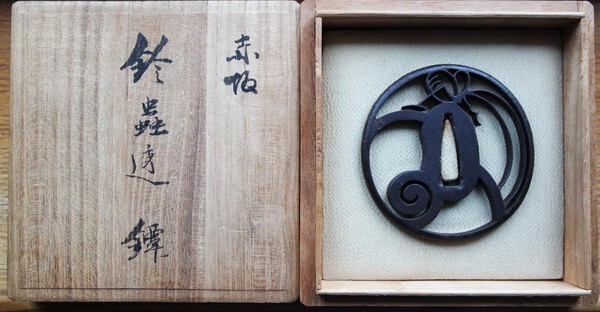 赤坂
鈴蟲透鐔